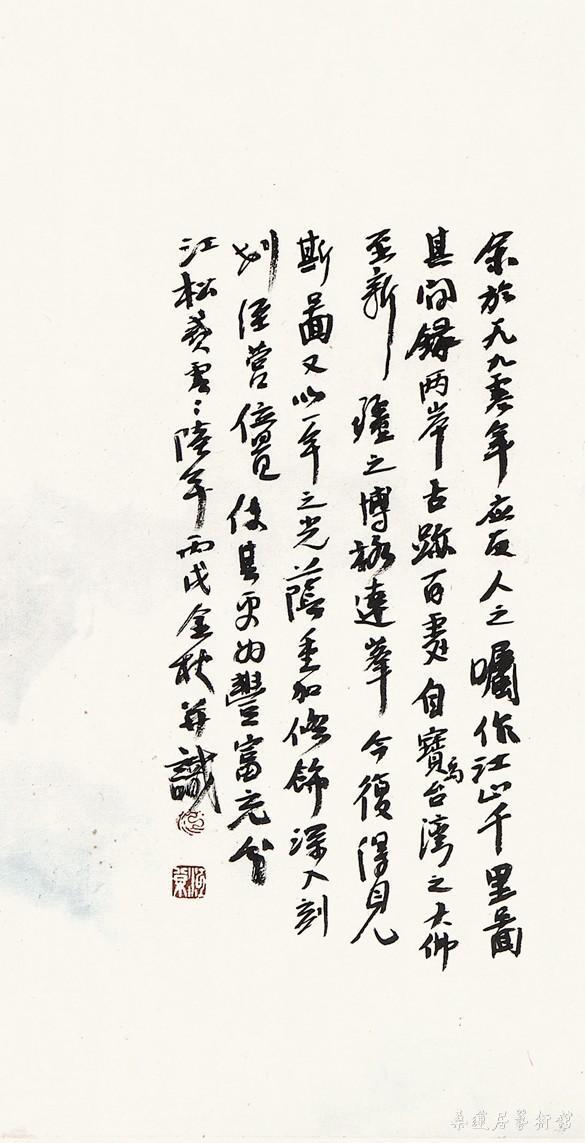 余於一九九零年應友人之囑作江山千里圖
其間錄兩岸古跡百處自寶島台灣之大佛
至新疆之博格達峯今復得見
斯圖又以一年之光蔭重加修飾深入刻
划經營位置使其更为豐富充分
江松貳零零陸年丙戌金秋並識
桑蓮居藝術館